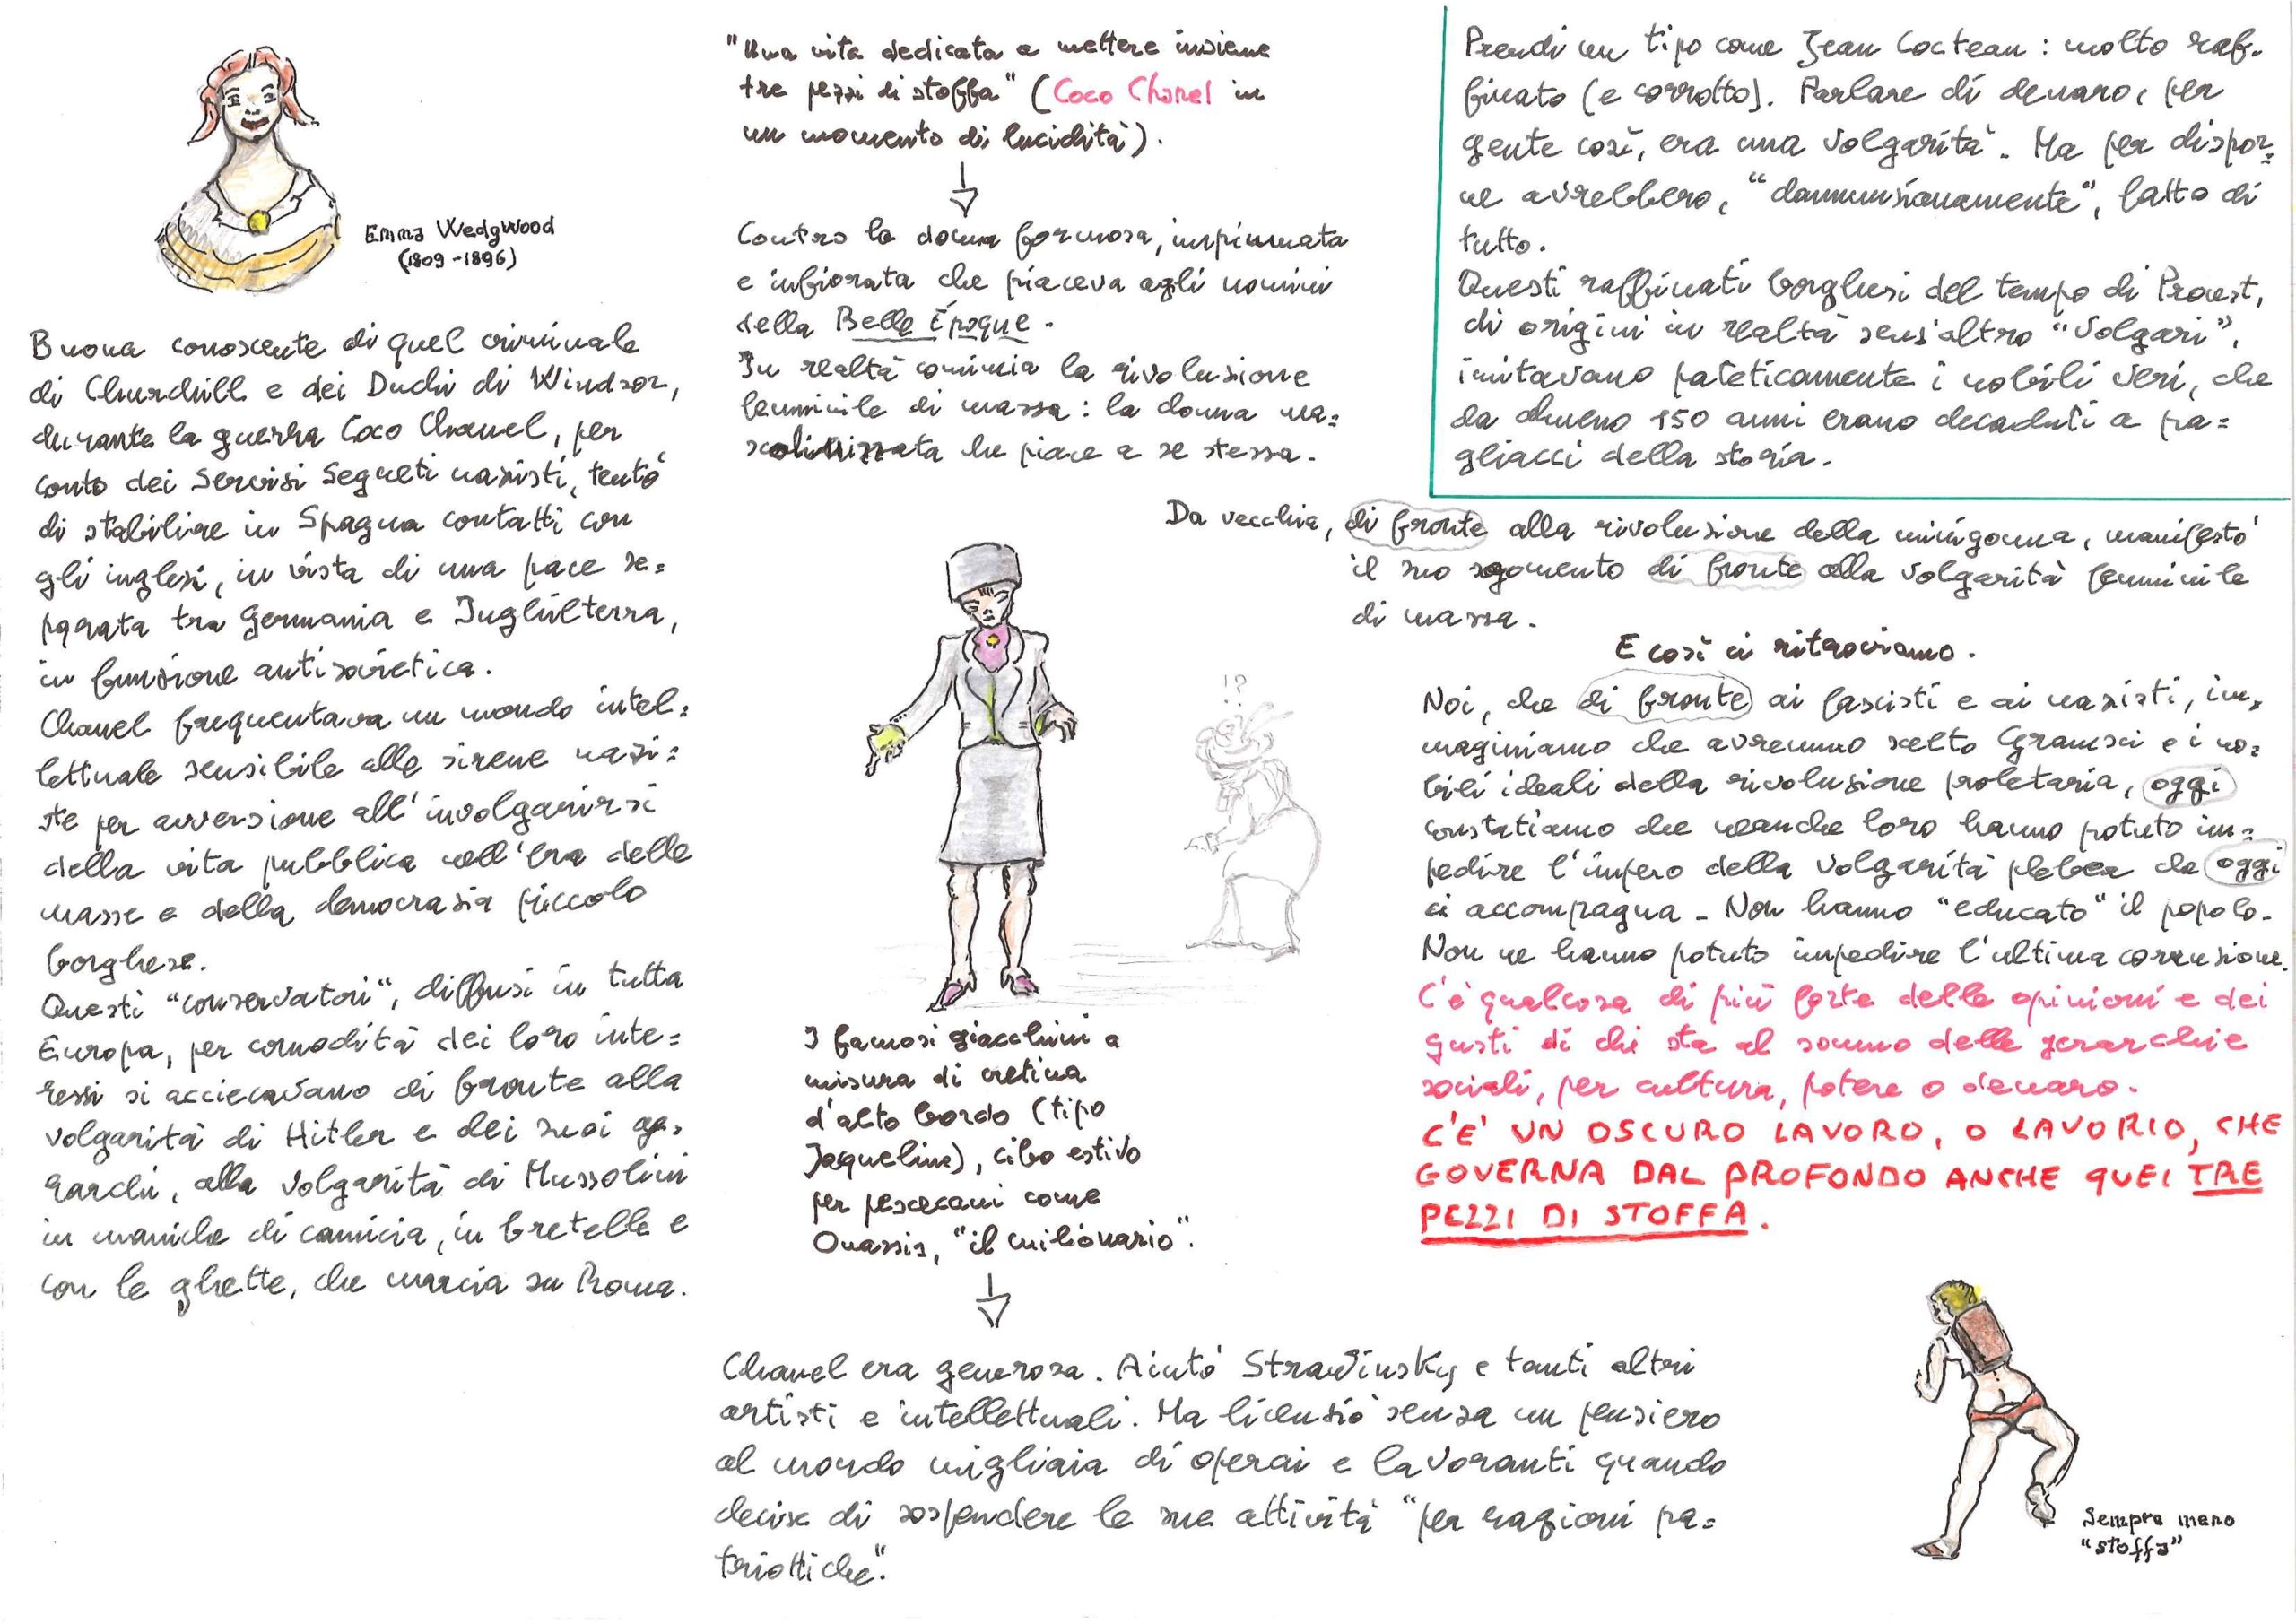 Emma Wedgwood
(1809-1896)
Buona conoscente di quel criminale
di Churchill e dei Duchi di Windsor,
durante la guerra Coco Chanel, per
conto dei Servizi Segreti nazisti, tentò
di stabilire in Spagna contatti con
gli inglesi, in vista di una pace se=
parata tra Germania e Inghilterra,
in funzione antisovietica.
Chanel frequentava un mondo intel=
lettuale sensibile alle sirene nazi=
ste per avversione all'involgarirsi
della vita pubblica nell'era delle
masse e della democrazia piccolo
borghese.
Questi "conservatori", diffusi in tutta
Europa, per comodità dei loro inte=
ressi si acciecavano di fronte alla
volgarità di Hitler e dei suoi ge=
rarchi, alla volgarità di Mussolini
in maniche di camicia, in bretelle e
con le ghette, che marcia su Roma.
"Una vita dedicata a mettere insieme
tre pezzi di stoffa" (Coco Chanel in
un momento di lucidità).
Contro la donna formosa, impiumata
e infiorata che piaceva agli uomini
della Belle Époque.
In realtà comincia la rivoluzione
femminile di massa: la donna ma=
scolinizzata che piace a se stessa.
I famosi giacchini a
misura di cretina
d'alto bordo (tipo
Jaqueline), cibo estivo
per pescecani come
Onassis, "il milionario".
Chanel era generosa. Aiutò Stravinsky e tanti altri
artisti e intellettuali. Ma licenziò senza un pensiero
al mondo migliaia di operai e lavoranti quando
decise di sospendere le sue attività "per ragioni pa=
triottiche".
Prendi un tipo come Jean Cocteau: molto raf=
finato (e corrotto). Parlare di denaro, per
gente così, era una volgarità. Ma per dispor=
ne avrebbero, "dannunzianamente", fatto di
tutto.
Questi raffinati borghesi del tempo di Proust,
di origini in realtà senz'altro "volgari",
imitavano pateticamente i nobili veri, che
da almeno 150 anni erano decaduti a pa=
gliacci della storia.
Da vecchia, di fronte alla rivoluzione della minigonna, manifestò
il suo sgomento di fronte alla volgarità femminile
di massa.
E così ci ritroviamo.
Noi, che di fronte ai fascisti e ai nazisti, im=
maginiamo che avremmo scelto Gramsci e i no=
bili ideali della rivoluzione proletaria, oggi
constatiamo che neanche loro hanno potuto im=
pedire l'impero della volgarità plebea che oggi
ci accompagna. Non hanno "educato" il popolo.
Non ne hanno potuto impedire l'ultima corruzione.
C'è qualcosa di più forte delle opinioni e dei
gusti di chi sta al sommo delle gerarchie
sociali, per cultura, potere o denaro.
C'E' UN OSCURO LAVORO, O LAVORIO, CHE
GOVERNA DAL PROFONDO ANCHE QUEI TRE
PEZZI DI STOFFA.
!?
Sempre meno
"stoffa"